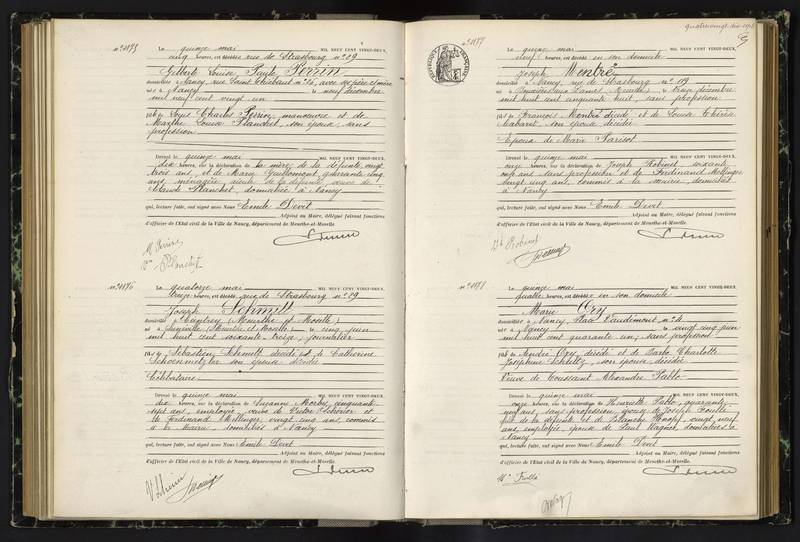 n° 1175
Le quinze mai MIL NEUF CENT VINGT-DEUX,
cinq heures, est décédée rue de Strasbourg n° 09
Gilberte Louise Paule Perrin
domiciliée à Nancy, rue Saint Thiébaut n° 20, avec ses père et mère
née à Nancy le neuf décembre
mil neuf cent vingt un
fille de Louis Charles Perrin, manoeuvre et de
Marthe Louise Planchet, son épouse, sans
profession
Dressé le quinze mai MIL NEUF CENT VINGT-DEUX,
dix heures, sur la déclaration de la mère de la défunte, vingt
trois ans, et de Marie Guillemont, quarante cinq
ans, ménagère, aïeule de la défunte, veuve de
Planchet, domiciliées à Nancy
qui, lecture faite, ont signé avec Nous Emile Devit
Adjoint au Maire, délégué faisant fonctions
d'officier de l'Etat civil de la Ville de Nancy, département de Meurthe-et-Moselle.
n° 1176
Le quatorze mai MIL NEUF CENT VINGT-DEUX,
treize heures, est décédé rue de Strasbourg n° 09
Joseph Schmitt
domicilié à (Meurthe et Moselle)
né à (Meurthe et Moselle) le cinq juin
mil huit cent soixante treize, journalier
fils de Sébastien Schmitt décédé et de Catherine
son épouse décédée
Célibataire
Dressé le quinze mai MIL NEUF CENT VINGT-DEUX,
dix heures, sur la déclaration de Suzanne cinquante
sept ans, employée, veuve de Victor et
de Ferdinand Mellinger, vingt cinq ans, commis
à la Mairie domiciliés à Nancy
qui, lecture faite, ont signé avec Nous Emile Devit
Adjoint au Maire, délégué faisant fonctions
d'officier de l'Etat civil de la Ville de Nancy, département de Meurthe-et-Moselle.
n° 1177
Le quinze mai MIL NEUF CENT VINGT-DEUX,
neuf heures, est décédé en son domicile
Joseph Mentré
domicilié à Nancy, rue de Strasbourg n° 119
né à (Meuse) le treize décembre
mil huit cent cinquante huit, sans profession
fils de François Mentré décédé et de Louise Thérèse
son épouse décédée
Epoux de Marie Parisot
Dressé le quinze mai MIL NEUF CENT VINGT-DEUX,
onze heures, sur la déclaration de Joseph Robinet, soixante
ans, sans profession et de Ferdinand Mellinger
vingt cinq ans, commis à la mairie, domiciliés
à Nancy
qui, lecture faite, ont signé avec Nous Emile Devit
Adjoint au Maire, délégué faisant fonctions
d'officier de l'Etat civil de la Ville de Nancy, département de Meurthe-et-Moselle.
n° 1178
Le quinze mai MIL NEUF CENT VINGT-DEUX,
quatre heures, est décédée en son domicile
Marie Ory
domiciliée à Nancy, Place Vaudémont n° 4
née à Nancy le vingt cinq juin
mil huit cent quarante un, sans profession
fille de André Ory, décédé et de Barbe Charlotte
Joséphine son épouse, décédée
Veuve de Toussaint Alexandre
Dressé le quinze mai MIL NEUF CENT VINGT-DEUX,
onze heures, sur la déclaration de Henriette quarante
neuf ans, sans profession, épouse de Joseph
fille de la défunte et de Blanche vingt neuf
ans, employée, épouse de Paul Wagner, domiciliées à
Nancy
qui, lecture faite, ont signé avec Nous Emile Devit
Adjoint au Maire, délégué faisant fonctions
d'officier de l'Etat civil de la Ville de Nancy, département de Meurthe-et-Moselle.